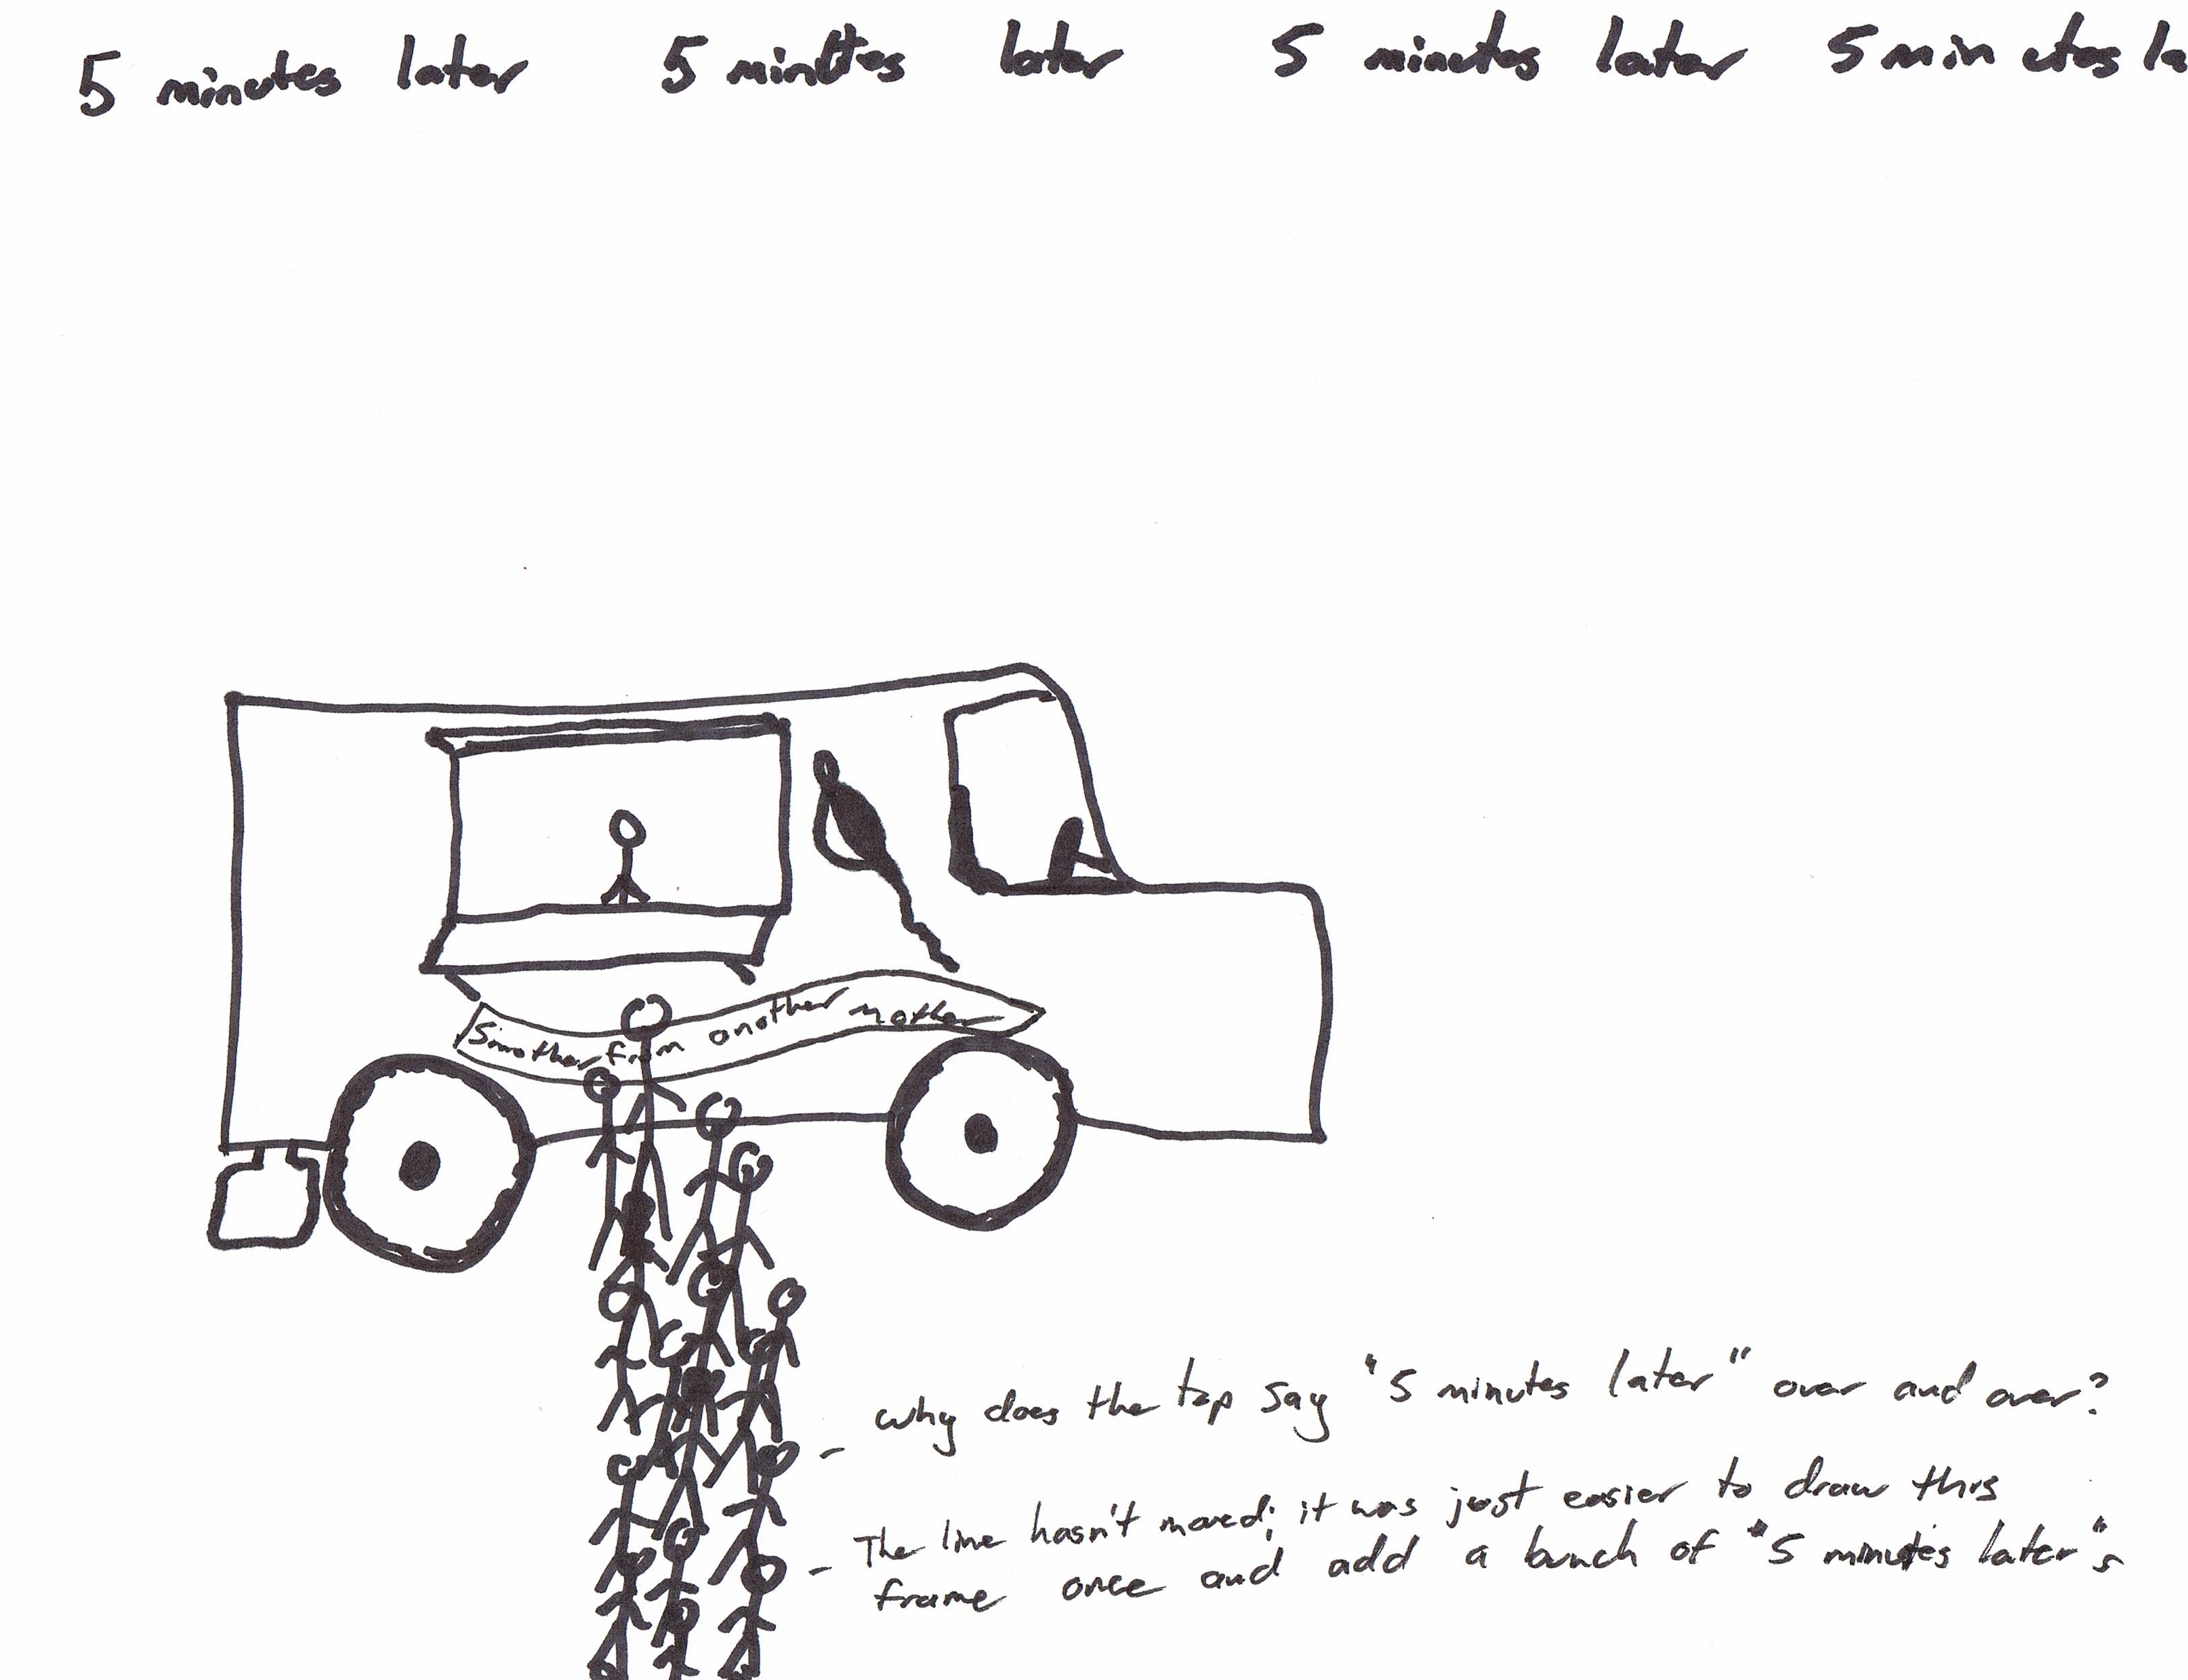 5 minutes later 5 minutes later 5 minutes later 5 minutes la
Smother from another mother
- Why does the top say "5 minutes later" over and over?
- The line hasn't moved; it was just easier to draw this
frame once and add a bunch of "5 minutes later"s